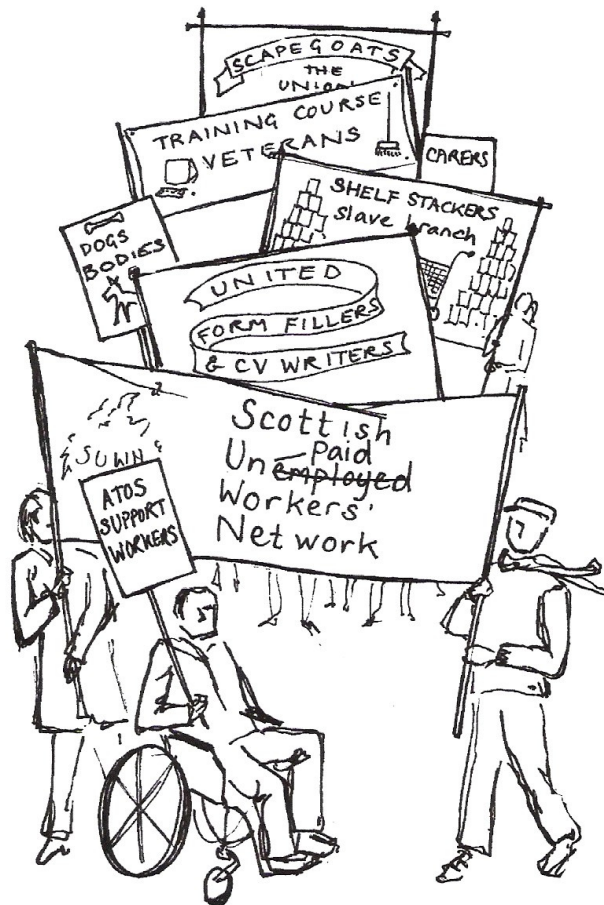 SCAPEGOATS
THE
UNION
TRAINING COURSE
VETERANS
CARERS
SHELF STACKERS
slave branch
DOGS
BODIES
UNITED
FORM FILLERS
& CV WRITERS
Scottish
Paid
Unemployed
Workers'
Network
SUWN
ATOS
SUPPORT
WORKERS